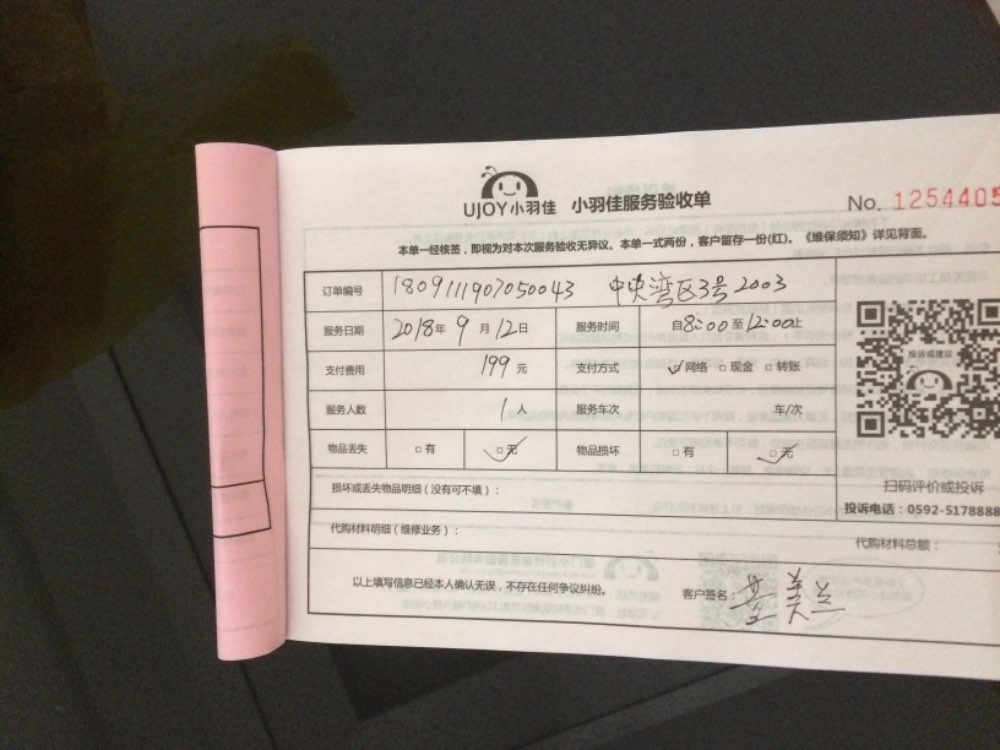 UJOY小羽佳 小羽佳服务验收单 No. 1254405
本单一经核签，即视为对本次服务验收无异议。本单一式两份，客户留存一份(红)。《维保须知》详见背面。
订单编号 1809111907050043 中央湾区3号2003
服务日期 2018年9月12日 服务时间 自8:00至12:00止
支付费用 199元 支付方式 网络 现金 转账
服务人数 1人 服务车次 车/次
物品丢失 有 无 物品损坏 有 无
投诉或建议
扫码评价或投诉
投诉电话：0592-5178888
损坏或丢失物品明细（没有可不填）：
代购材料明细（维修业务）：
代购材料总额：
以上填写信息已经本人确认无误，不存在任何争议纠纷。 客户签名：